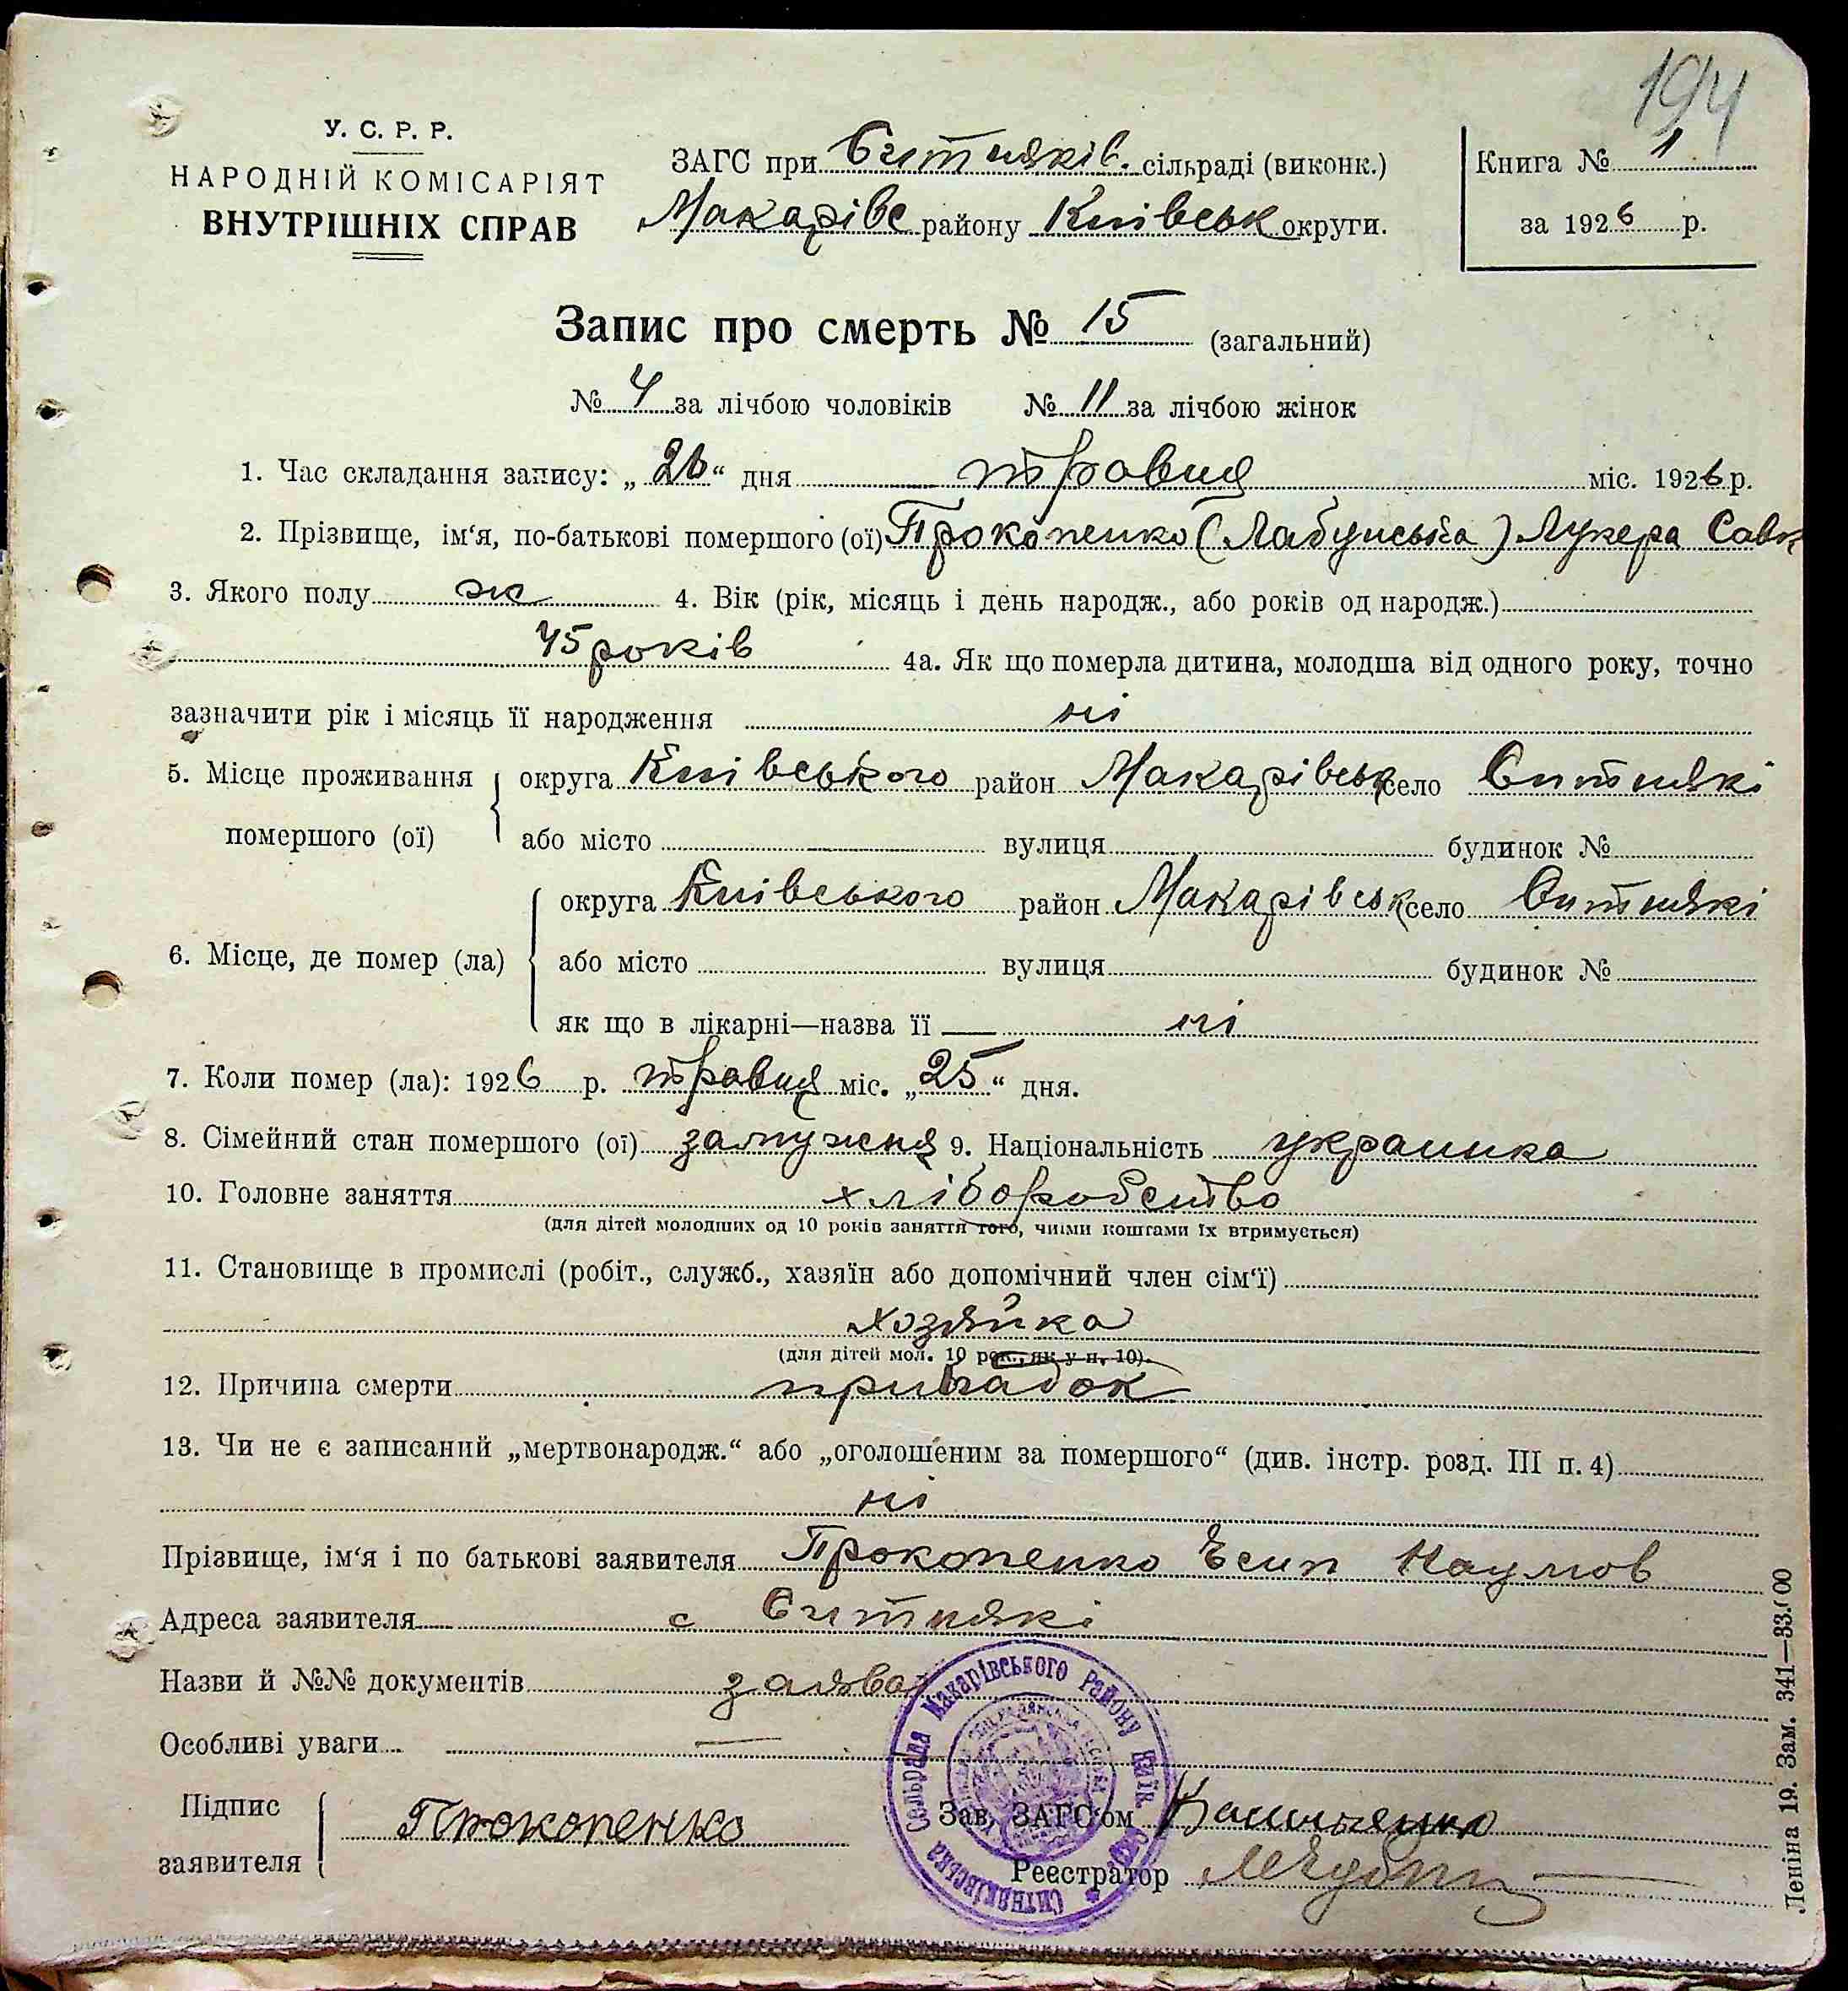 194
У. С. Р. Р.
НАРОДНІЙ КОМІСАРІЯТ
ВНУТРІШНІХ СПРАВ
ЗАГС при Ситняків. сільраді (виконк.)
Макарівс району Київськ округи.
Книга № 1
за 1926 р.
Запис про смерть № 15 (загальний)
№ 4 за лічбою чоловіків № 11 за лічбою жінок
1. Час складання запису: „26“ дня травня міс. 1926 р.
2. Прізвище, ім‘я, по-батькові помершого (ої) Прокопенко (Лабунська) Лукера Савк
3. Якого полу ж 4. Вік (рік, місяць і день народж., або років од народж.)
45 років 4а. Як що померла дитина, молодша від одного року, точно
зазначити рік і місяць її народження ні
5. Місце проживання помершого (ої) округа Київського район Макарівськ село Ситнякі
або місто вулиця будинок №
6. Місце, де помер (ла) округа Київського район Макарівськ село Ситнякі
або місто вулиця будинок №
як що в лікарні—назва її ні
7. Коли помер (ла): 1926 р. травня міс. „25“ дня.
8. Сімейний стан помершого (ої) замужня 9. Національність украинка
10. Головне заняття хліборобство
(для дітей молодших од 10 років заняття того, чиїми коштами їх втримується)
11. Становище в промислі (робіт., служб., хазяїн або допомічний член сім‘ї)
хозяйка
(для дітей мол. 10 рок., як у п. 10).
12. Причина смерти припадок
13. Чи не є записаний „мертвонародж.“ або „оголошеним за помершого“ (див. інстр. розд. III п. 4)
ні
Прізвище, ім‘я і по батькові заявителя Прокопенко Есип Наумов
Адреса заявителя с Ситнякі
Назви й №№ документів заява
Особливі уваги —
Підпис заявителя Прокопенко
Зав. ЗАГС‘ом
Реєстратор
Ситняківська Сельрада Макарівського Району Київ. Окр.
Леніна 19. Зам. 341—33.000